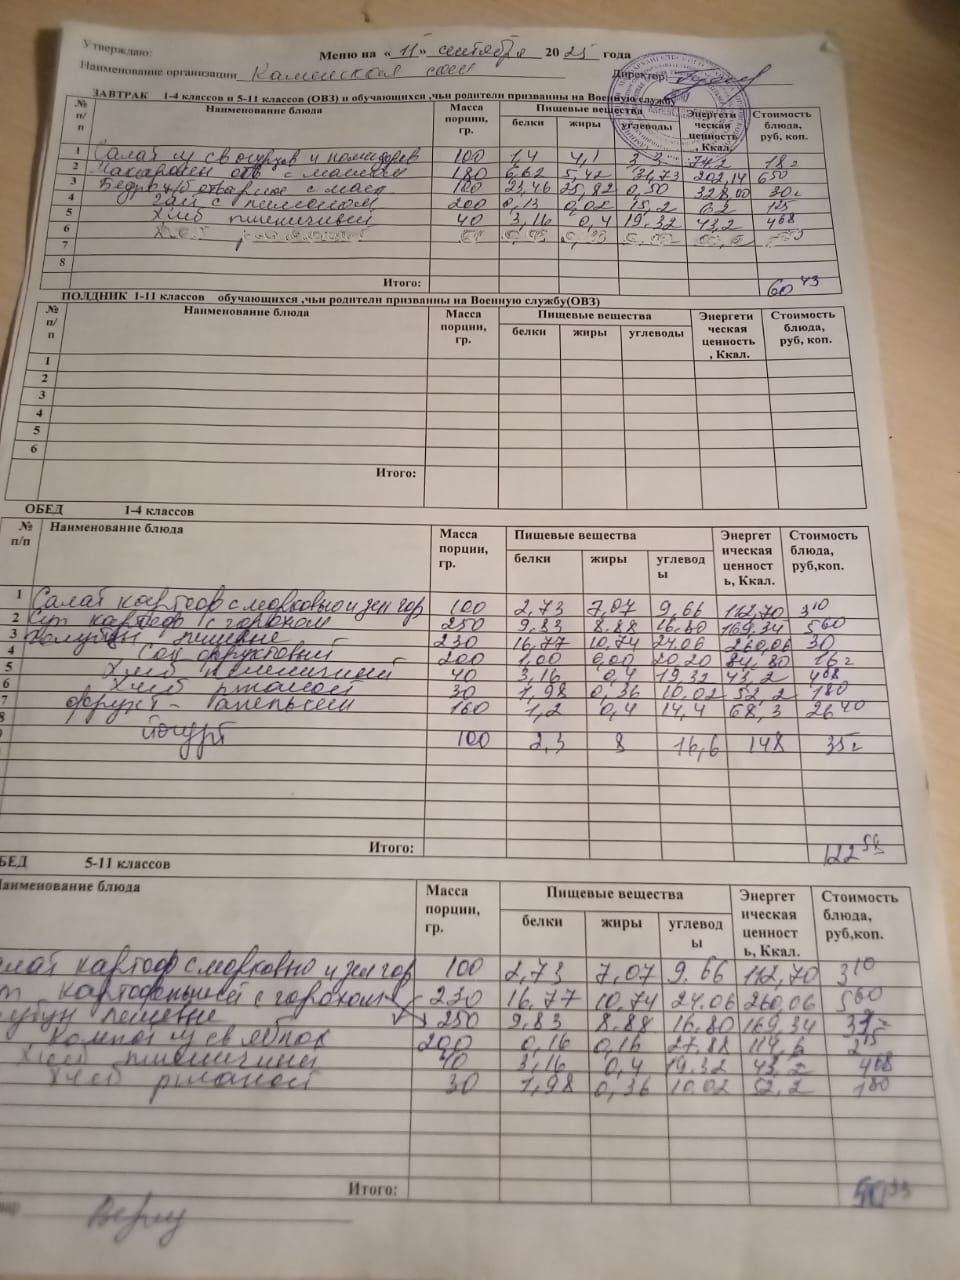 Утверждаю:
Меню на « 11 » сентября 2025 года
Наименование организации Каменская сош Директор:
ЗАВТРАК 1-4 классов и 5-11 классов (ОВЗ) и обучающихся ,чьи родители призванны на Военную службу
№ п/п Наименование блюда Масса порции, гр. Пищевые вещества Энергети ческая ценность , Ккал. Стоимость блюда, руб, коп.
белки жиры углеводы
1 Салат из св огурцов и помидоров 100 1,4 4,1 3,3 74,2 18=
2 Макароны отв с маслом 180 6,62 5,42 31,73 202,14 6 50
3 отварные с масл 100 23,46 25,82 0,50 328,00 30=
4 Чай с лимоном 200 0,13 0,02 15,2 62 1 85
5 Хлеб пшеничный 40 3,16 0,4 19,32 43,2 4 08
6
7
8
Итого: 60 43
ПОЛДНИК 1-11 классов обучающихся ,чьи родители призванны на Военную службу(ОВЗ)
№ п/п Наименование блюда Масса порции, гр. Пищевые вещества Энергети ческая ценность , Ккал. Стоимость блюда, руб, коп.
белки жиры углеводы
1
2
3
4
5
6
Итого:
ОБЕД 1-4 классов
№ п/п Наименование блюда Масса порции, гр. Пищевые вещества Энергет ическая ценност ь, Ккал. Стоимость блюда, руб,коп.
белки жиры углевод ы
1 Салат картоф с морковью и зел гор 100 2,73 7,07 9,66 112,70 3 10
2 Суп картоф с горохом 250 9,83 8.88 16,80 169,34 5 60
3 Голубцы ленивые 230 16,77 10,74 24.06 260,06 30
4 Сок фруктовый 200 1,00 0,00 20,20 84,80 16=
5 Хлеб пшеничный 40 3,16 0,4 19,32 43,2 4 08
6 Хлеб ржаной 30 1,98 0,36 10,02 52,2 1 80
7 Фрукт - апельсин 160 1,2 0,4 14,4 68,3 26 40
8 йогурт 100 2,3 8 16,6 148 35=
Итого: 122 58
БЕД 5-11 классов
Наименование блюда Масса порции, гр. Пищевые вещества Энергет ическая ценност ь, Ккал. Стоимость блюда, руб,коп.
белки жиры углевод ы
алат картоф с морковью и зел гор 100 2,73 7,07 9.66 112,70 3 10
п картофельный с горохом 230 16,77 10,74 24.06 260,06 5 60
ленивые 250 9,83 8.88 16,80 169,34
Компот из св яблок 200 0,16 0,16 27.88 114,6 2 75
Хлеб пшеничный 40 3,16 0,4 19.32 43,2 4 08
Хлеб ржаной 30 1,98 0,36 10.02 52,2 1 80
Итого: